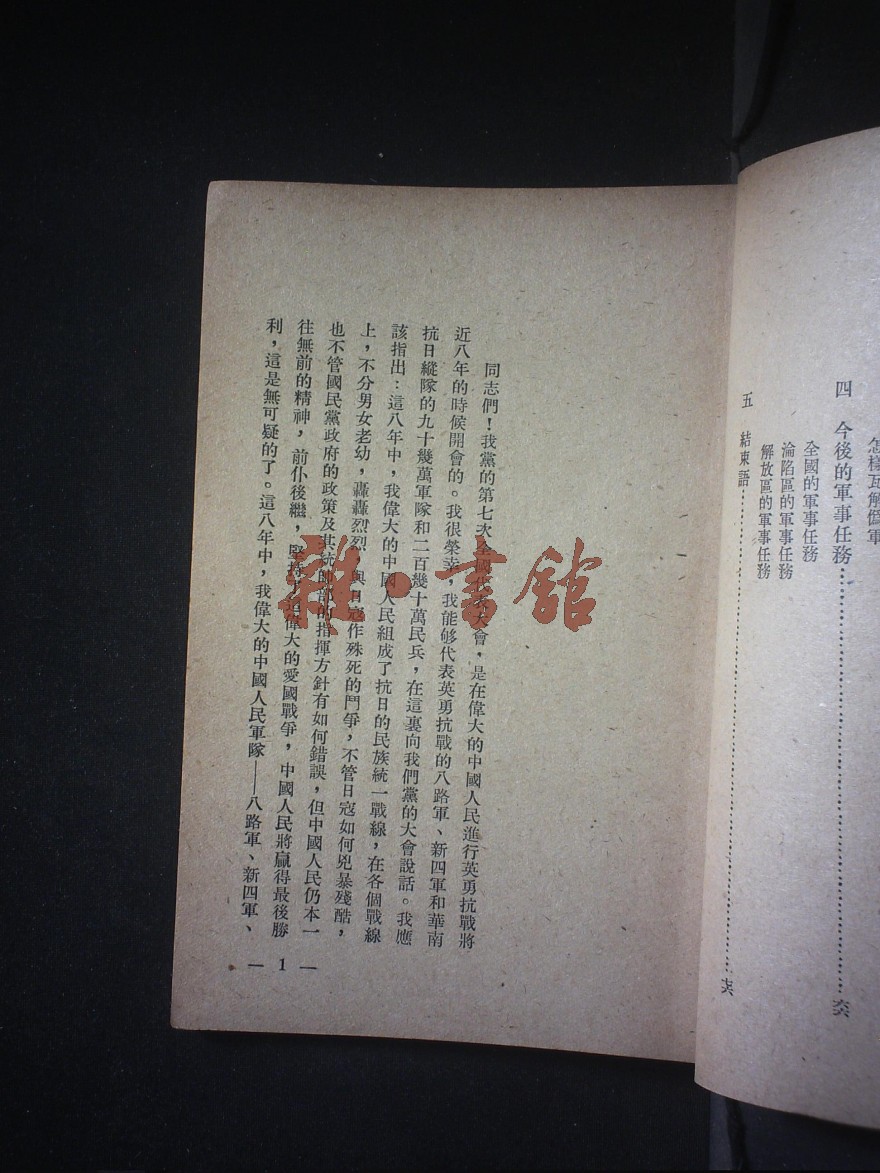 怎樣瓦解僞軍
四　今後的軍事任務
全國的軍事任務
淪陷區的軍事任務
解放區的軍事任務
五　結束語
同志們！我黨的第七次全國代表大會，是在偉大的中國人民進行英勇抗戰將
近八年的時候開會的。我很榮幸，我能够代表英勇抗戰的八路軍、新四軍和華南
抗日縱隊的九十幾萬軍隊和二百幾十萬民兵，在這裏向我們黨的大會說話。我應
該指出：這八年中，我偉大的中國人民組成了抗日的民族統一戰線，在各個戰線
上，不分男女老幼，轟轟烈烈，與日寇作殊死的鬥爭，不管日寇如何兇暴殘酷，
也不管國民黨政府的政策及其統帥部的指揮方針有如何錯誤，但中國人民仍本一
往無前的精神，前仆後繼，堅持了這偉大的愛國戰爭，中國人民將贏得最後勝
利，這是無可疑的了。這八年中，我偉大的中國人民軍隊——八路軍、新四軍、
— 1 —
雜·書館